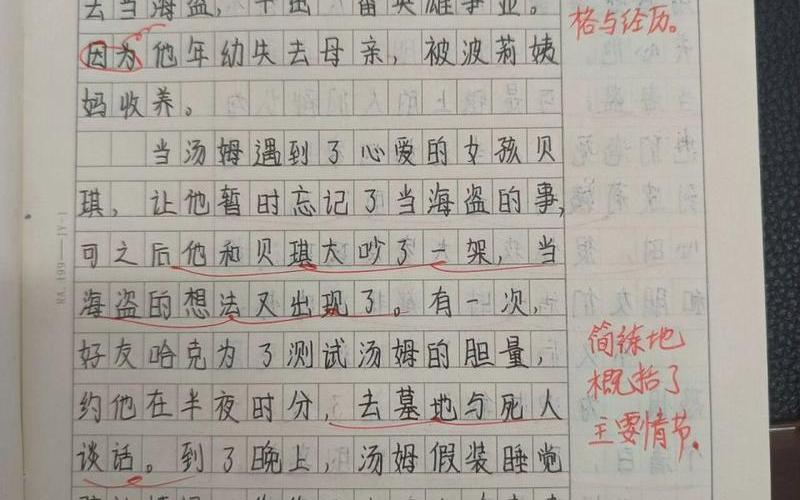 去当海盗，干出一番英雄事业。
格与经历。
因为他年幼失去母亲，被波莉姨
妈收养。
当汤姆遇到了心爱的女孩贝
琪，让他暂时忘记了当海盗的事，
可之后他和贝琪大吵了一架，当
海盗的想法又出现了。有一次，
好友哈克为了测试汤姆的胆量，
约他在半夜时分，去墓地与死人
谈话。到了晚上，汤姆假装睡觉
简练地
概括了
主要情节。